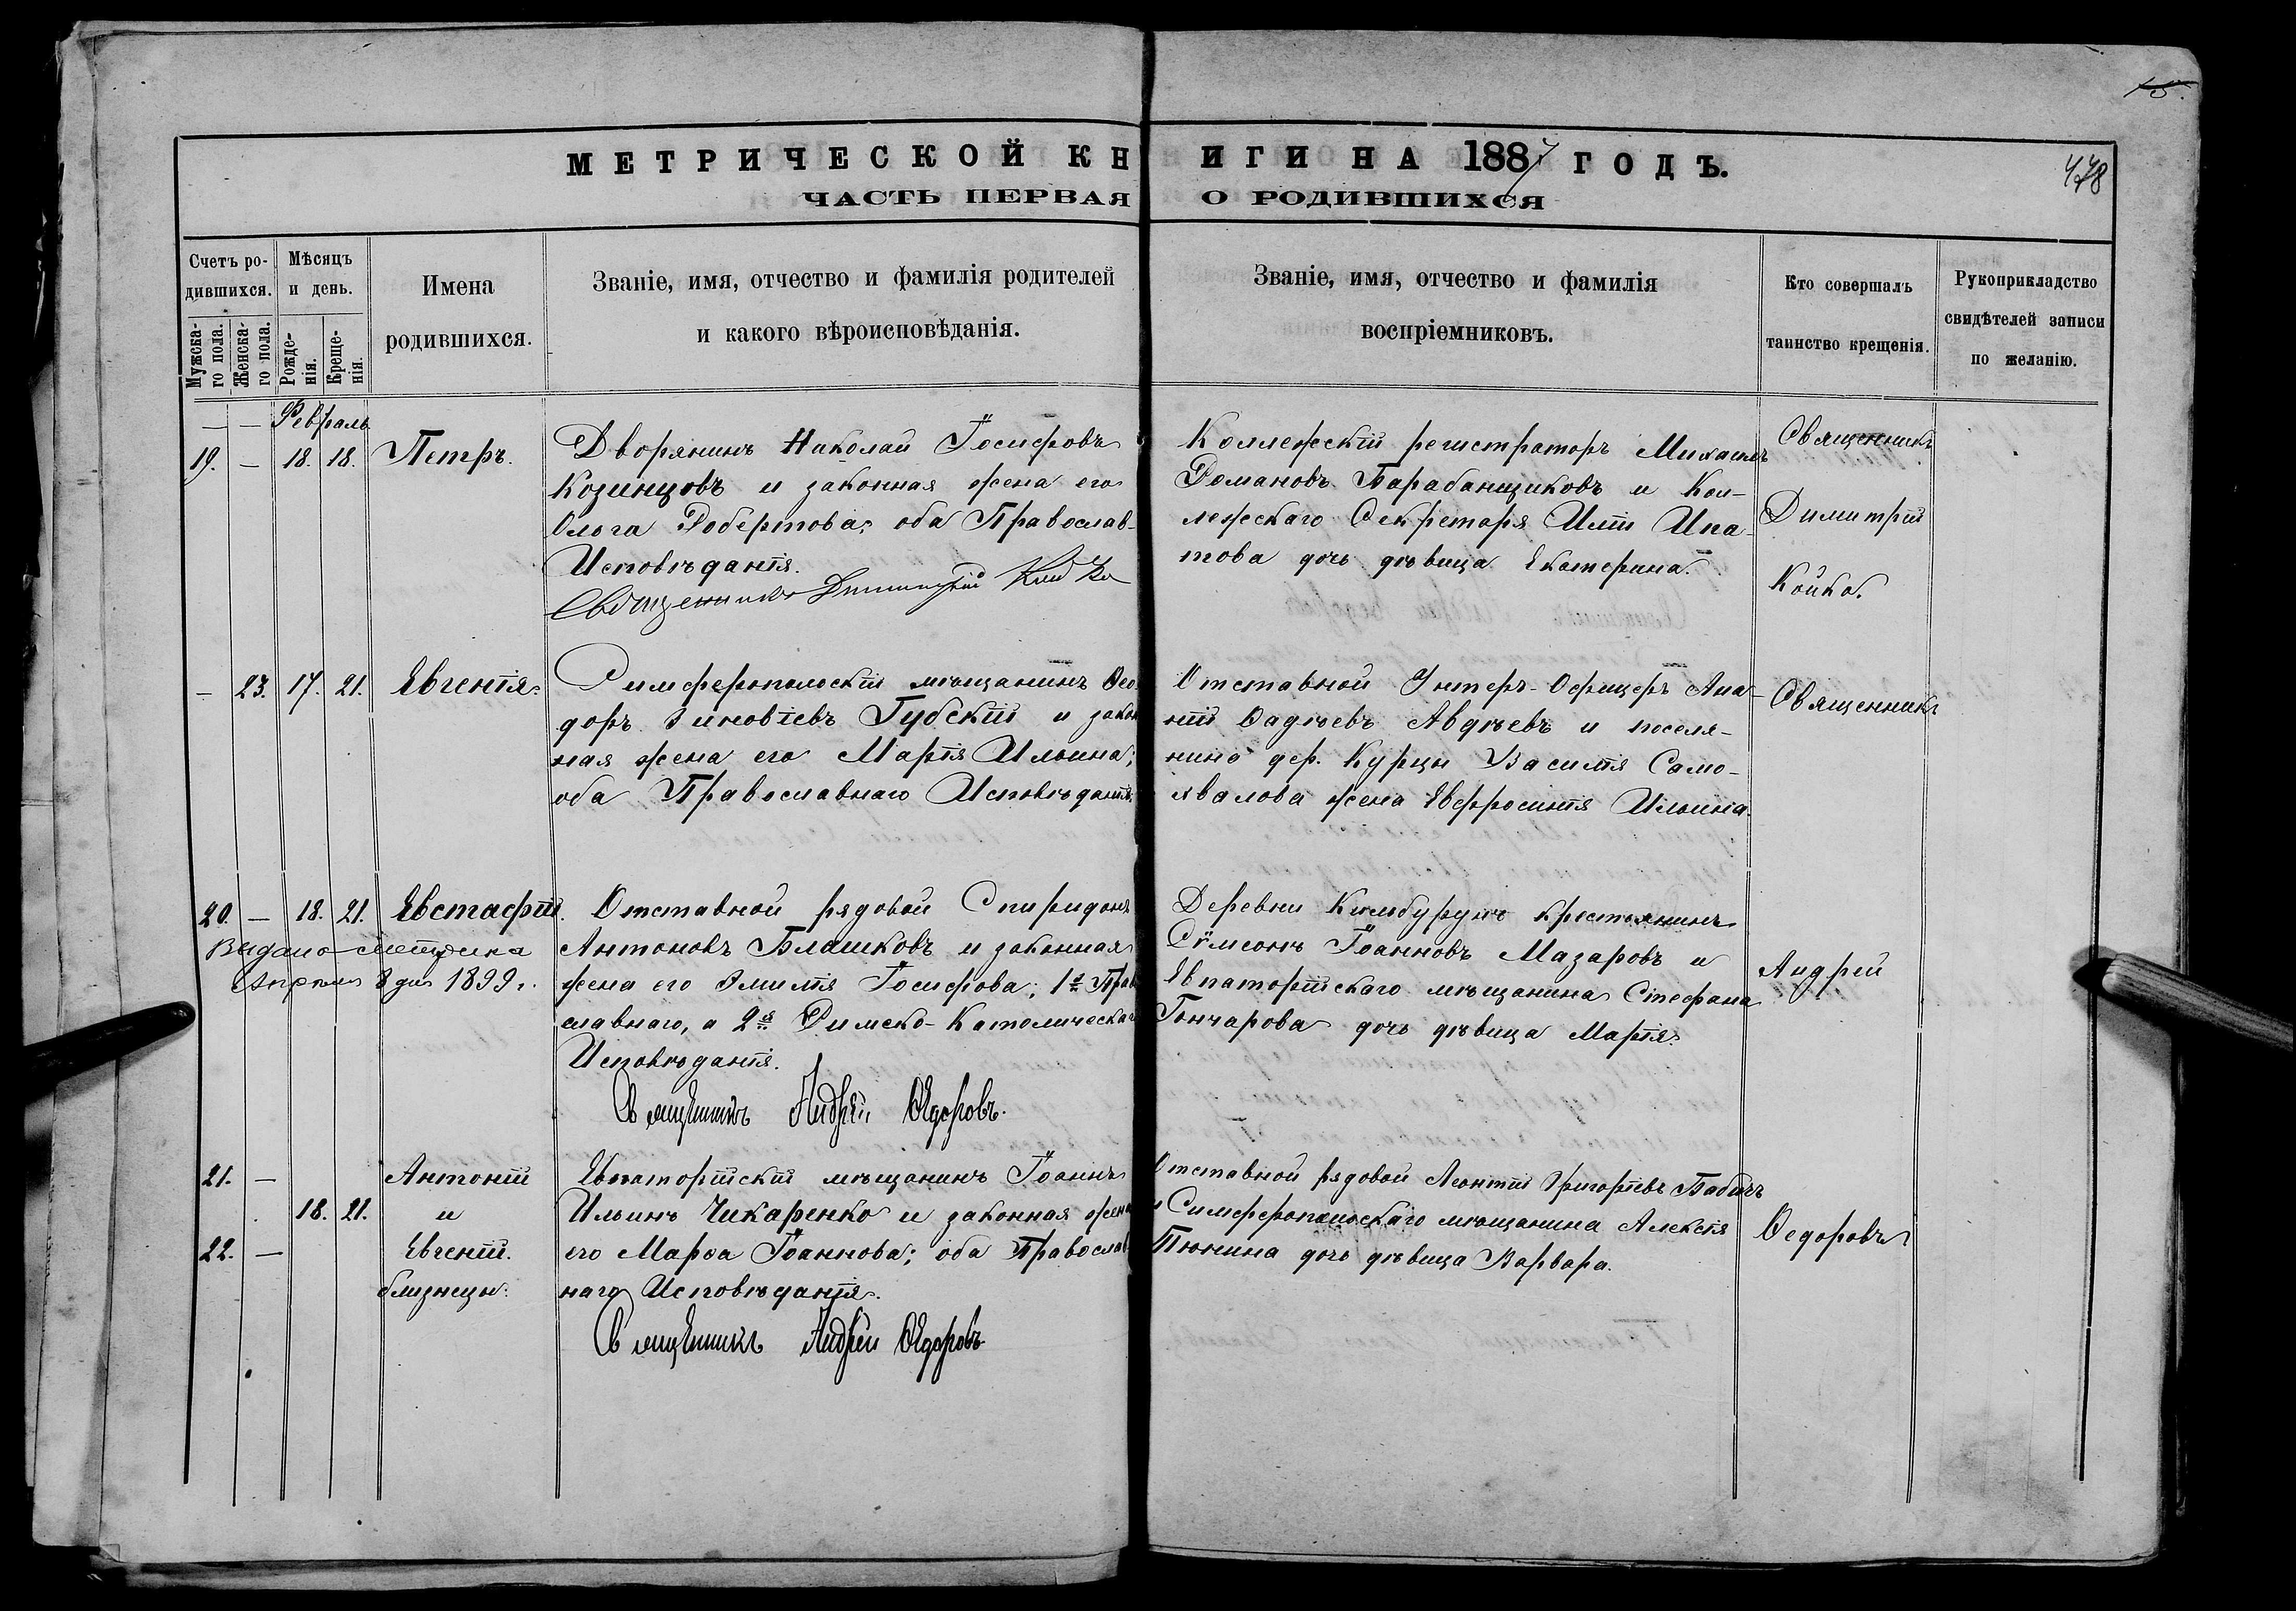 15.
МЕТРИЧЕСКОЙ КНИГИ НА 1887 ГОДЪ.
478
ЧАСТЬ ПЕРВАЯ О РОДИВШИХСЯ
Счетъ ро-
дившихся.
Мужска-
го пола.
Женска-
го пола.
Мѣсяцъ
и день.
Рожде-
нія.
Креще-
нія.
Имена
родившихся.
Званіе, имя, отчество и фамилія родителей
и какого вѣроисповѣданія.
Званіе, имя, отчество и фамилія
воспріемниковъ.
Кто совершалъ
таинство крещенія.
Рукоприкладство
свидѣтелей записи
по желанію.
— — Февраль
19. — 18. 18. Петръ.
Дворянинъ Николай Іосифовъ
Козинцовъ и законная жена его
Ольга Робертова; оба Православ-
Исповѣданія.
Священникъ Димитрій Койко
Коллежскій регистраторъ Михаилъ
Романовъ Барабанщиковъ и Кол-
лежскаго Секретаря Иліи Ипа-
това дочь дѣвица Екатерина.
Священникъ
Димитрій
Койко.
— 23. 17. 21. Евгенія.
Симферопольскій мѣщанинъ Ѳео-
доръ Зиновіевъ Губскій и закон
ная жена его Марія Ильина;
оба Православнаго Исповѣданія.
Отставной Унтеръ-Офицеръ Ана-
ній Фадѣевъ Авдѣевъ и поселя-
нина дер. Курцы Василія Само-
хвалова жена Евфросинія Ильина.
Священникъ
20. — 18. 21. Евстафій.
Выдана метрика
Апрѣля 8 дня 1899 г.
Отставной рядовой Спиридонъ
Антоновъ Блашковъ и законная
жена его Эмилія Іосифова; 1й Прав
славнаго, а 2я Римско-Католическаго
Исповѣданія.
Священникъ Андрей Ѳедоровъ.
Деревни Кильбурунъ крестьянинъ
Сѵмеонъ Іоанновъ Мазаровъ и
Евпаторійскаго мѣщанина Стефана
Гончарова дочь дѣвица Марія.
Андрей
21. — Антоній
18. 21. и
22. — Евгеній.
близнецы.
Евпаторійскій мѣщанинъ Іоаннъ
Ильинъ Чикаренко и законная жена
его Марѳа Іоаннова; оба Православ
наго Исповѣданія.
Священникъ Андрей Ѳедоровъ
Отставной рядовой Леонтій Григорьевъ Бабичъ
и Симферопольскаго мѣщанина Алексѣя
Пюнина дочь дѣвица Варвара.
Ѳедоровъ